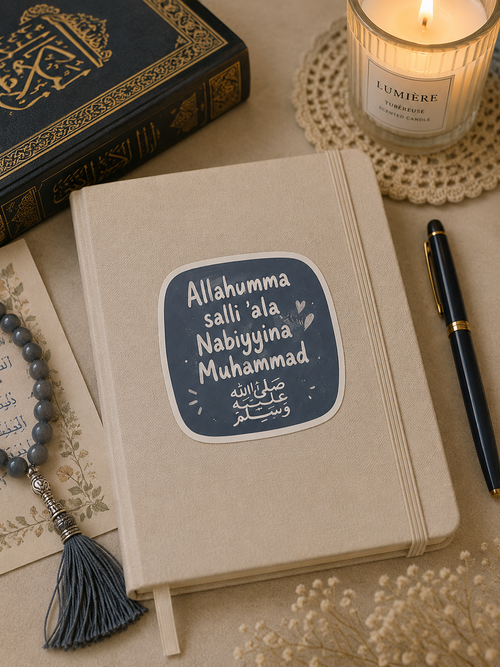 LUMIÈRE
TUBÉREUSE
SCENTED CANDLE
Allahumma
salli 'ala
Nabiyyina
Muhammad
صلى الله
عليه
وسلم